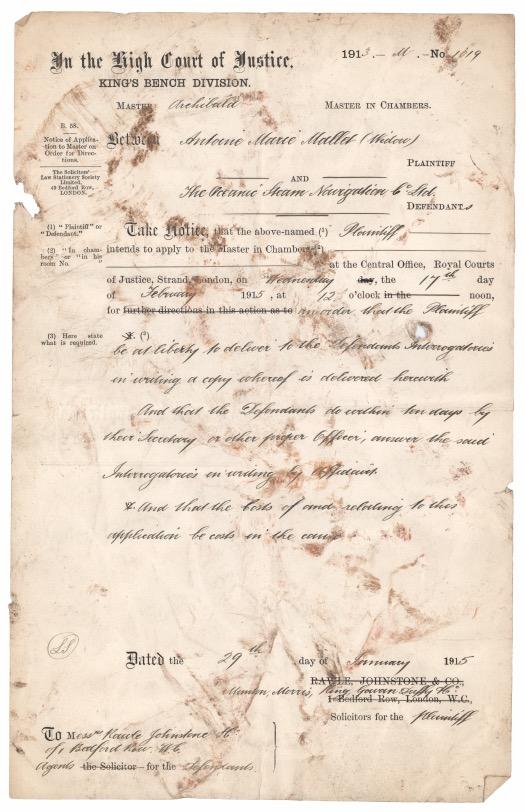 In the High Court of Justice,
1913.- M .-No. 1619
KING'S BENCH DIVISION.
MASTER Archibald MASTER IN CHAMBERS.
B. 58.
Notice of Applica-
tion to Master on
Order for Direc-
tions.
The Solicitors'
Law Stationery Society
Limited,
49 Bedford Row,
LONDON.
Between Antoine Marie Mallet (Widow)
PLAINTIFF
AND
The Oceanic Steam Navigation Co Ltd.
DEFENDANTS
(1) "Plaintiff" or
"Defendant."
Take Notice, that the above-named (¹) Plaintiff
(2) "In cham-
bers" or "in his
room No. "
intends to apply to the Master in Chambers (²)
at the Central Office, Royal Courts
of Justice, Strand, London, on Wednesday day, the 17th day
of February 1915, at 12 o'clock in the noon,
for further directions in this action as to an order that the Plaintiff
(3) Here state
what is required.
1. (³)
be at liberty to deliver to the Defendants Interrogatories
in writing a copy whereof is delivered herewith
And that the Defendants do within ten days by
their Secretary or other proper Officer, answer the said
Interrogatories in writing by affidavit.
& And that the Costs of and relating to this
application be costs in the cause
LS
Dated the 29th day of January 1915
RAWLE, JOHNSTONE & CO.,
Morris, King Gavan Duffy & Co
1 Bedford Row, London, W.C.,
Solicitors for the Plaintiff
To Messrs Rawle Johnstone & Co
of 1 Bedford Row. W.C.
Agents the Solicitor for the Defendants.